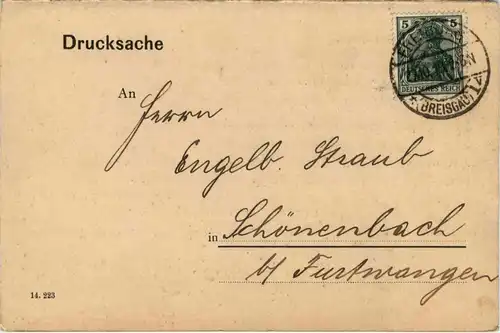 5 5
DEUTSCHES REICH
(BREISGAU) 1
Drucksache
An
Herrn
Engelb. Straub
in Schönenbach
b/ Furtwangen
14. 223